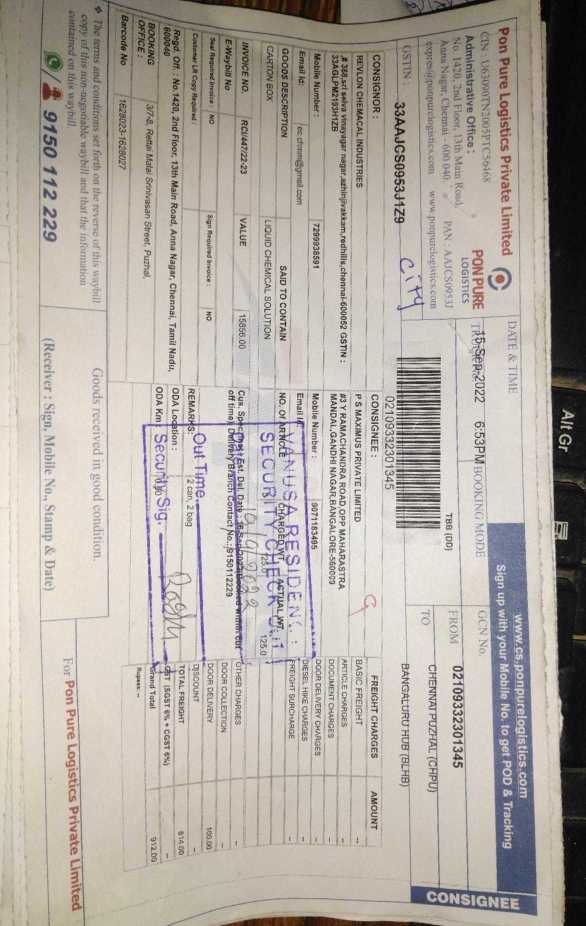 Pon Pure Logistics Private Limited
CIN : U63090TN2005PTC56468
Administrative Office :
No. 1420, 2nd Floor, 13th Main Road,
Anna Nagar, Chennai - 600 040
PAN : AAJCS0953J
www.ponpurelogistics.com
PON PURE
LOGISTICS
GSTIN : 33AAJCS0953J1Z9
City
DATE & TIME
15-Sep-2022 6:53PM
BOOKING MODE
TBB (DD)
02109332301345
www.cs.ponpurelogistics.com
Sign up with your Mobile No. to get POD & Tracking
GCN No. 02109332301345
FROM CHENNAI PUZHAL (CHPU)
TO BANGALURU HUB (BLHB)
CONSIGNEE
CONSIGNOR :
REVLON CHEMACAL INDUSTRIES
Mobile Number : 7299938591
Email Id:
CONSIGNEE :
P S MAXIMUS PRIVATE LIMITED
#3 Y RAMACHANDRA ROAD,OPP MAHARASTRA
MANDAL,GANDHI NAGAR,BANGALORE-560009
Mobile Number : 9071183495
Email Id
GOODS DESCRIPTION
CARTON BOX
SAID TO CONTAIN
LIQUID CHEMICAL SOLUTION
NO. Of ARTICLE
CHARGED WT
ACTUAL WT
125.0
INVOICE NO. RCI/447/22-23
VALUE 15856.00
E-Waybill No
Seal Required Invoice : NO
Sign Required Invoice : NO
Customer LR Copy Required :
REMARKS: 2 can, 2 bag
ODA Location :
ODA Km :
SECURITY CHECK
Out Time
Security Sig.
FREIGHT CHARGES AMOUNT
BASIC FREIGHT -
ARTICLE CHARGES -
DOCUMENT CHARGES -
DOOR DELIVERY CHARGES -
DIESEL HIKE CHARGES -
FREIGHT SURCHARGE -
OTHER CHARGES -
DOOR COLLECTION -
DOOR DELIVERY 100.00
DISCOUNT -
TOTAL FREIGHT 814.00
GST (SGST 6% + CGST 6%) -
Grand Total 912.00
Rupees:--
Regd. Off : No.1420, 2nd Floor, 13th Main Road, Anna Nagar, Chennai, Tamil Nadu,
600040
BOOKING
OFFICE : 3/7-8, Rettai Malai Srinivasan Street, Puzhal,
Barcode No 1628023-1628027
❖ The terms and conditions set forth on the reverse of this waybill
copy of this non-negotiable waybill and that the information
contained on this waybill
9150 112 229
Goods received in good condition.
(Receiver : Sign, Mobile No., Stamp & Date)
For Pon Pure Logistics Private Limited
Alt Gr